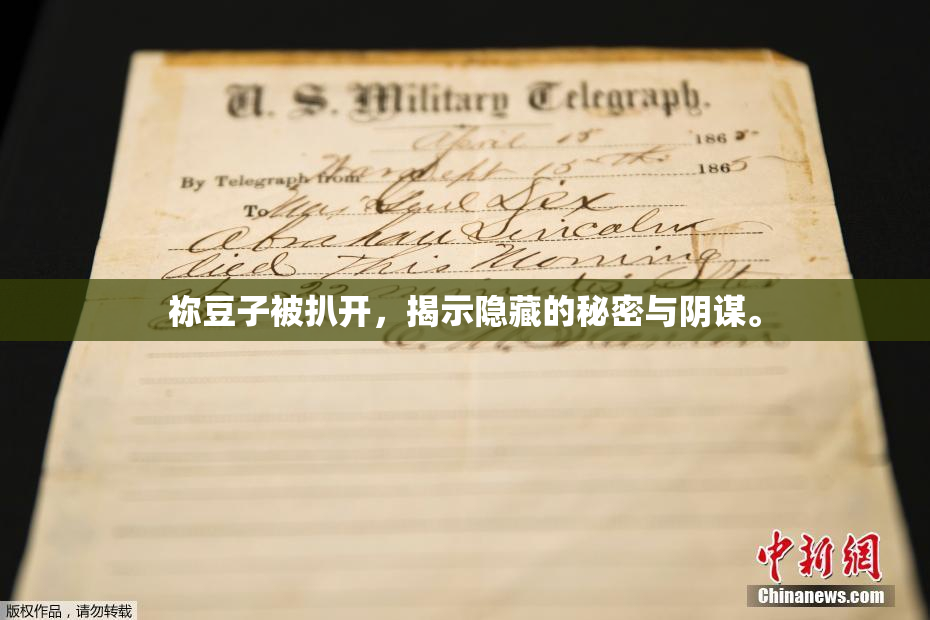 U. S. Military Telegraph.
April 15 1865
By Telegraph from War Dept 15th 1865
To Maj Genl Dix
Abraham Lincoln
died This Morning
at 22 minutes after
祢豆子被扒开，揭示隐藏的秘密与阴谋。
E. M. Stanton
中新網
Chinanews.com
版权作品，请勿转载